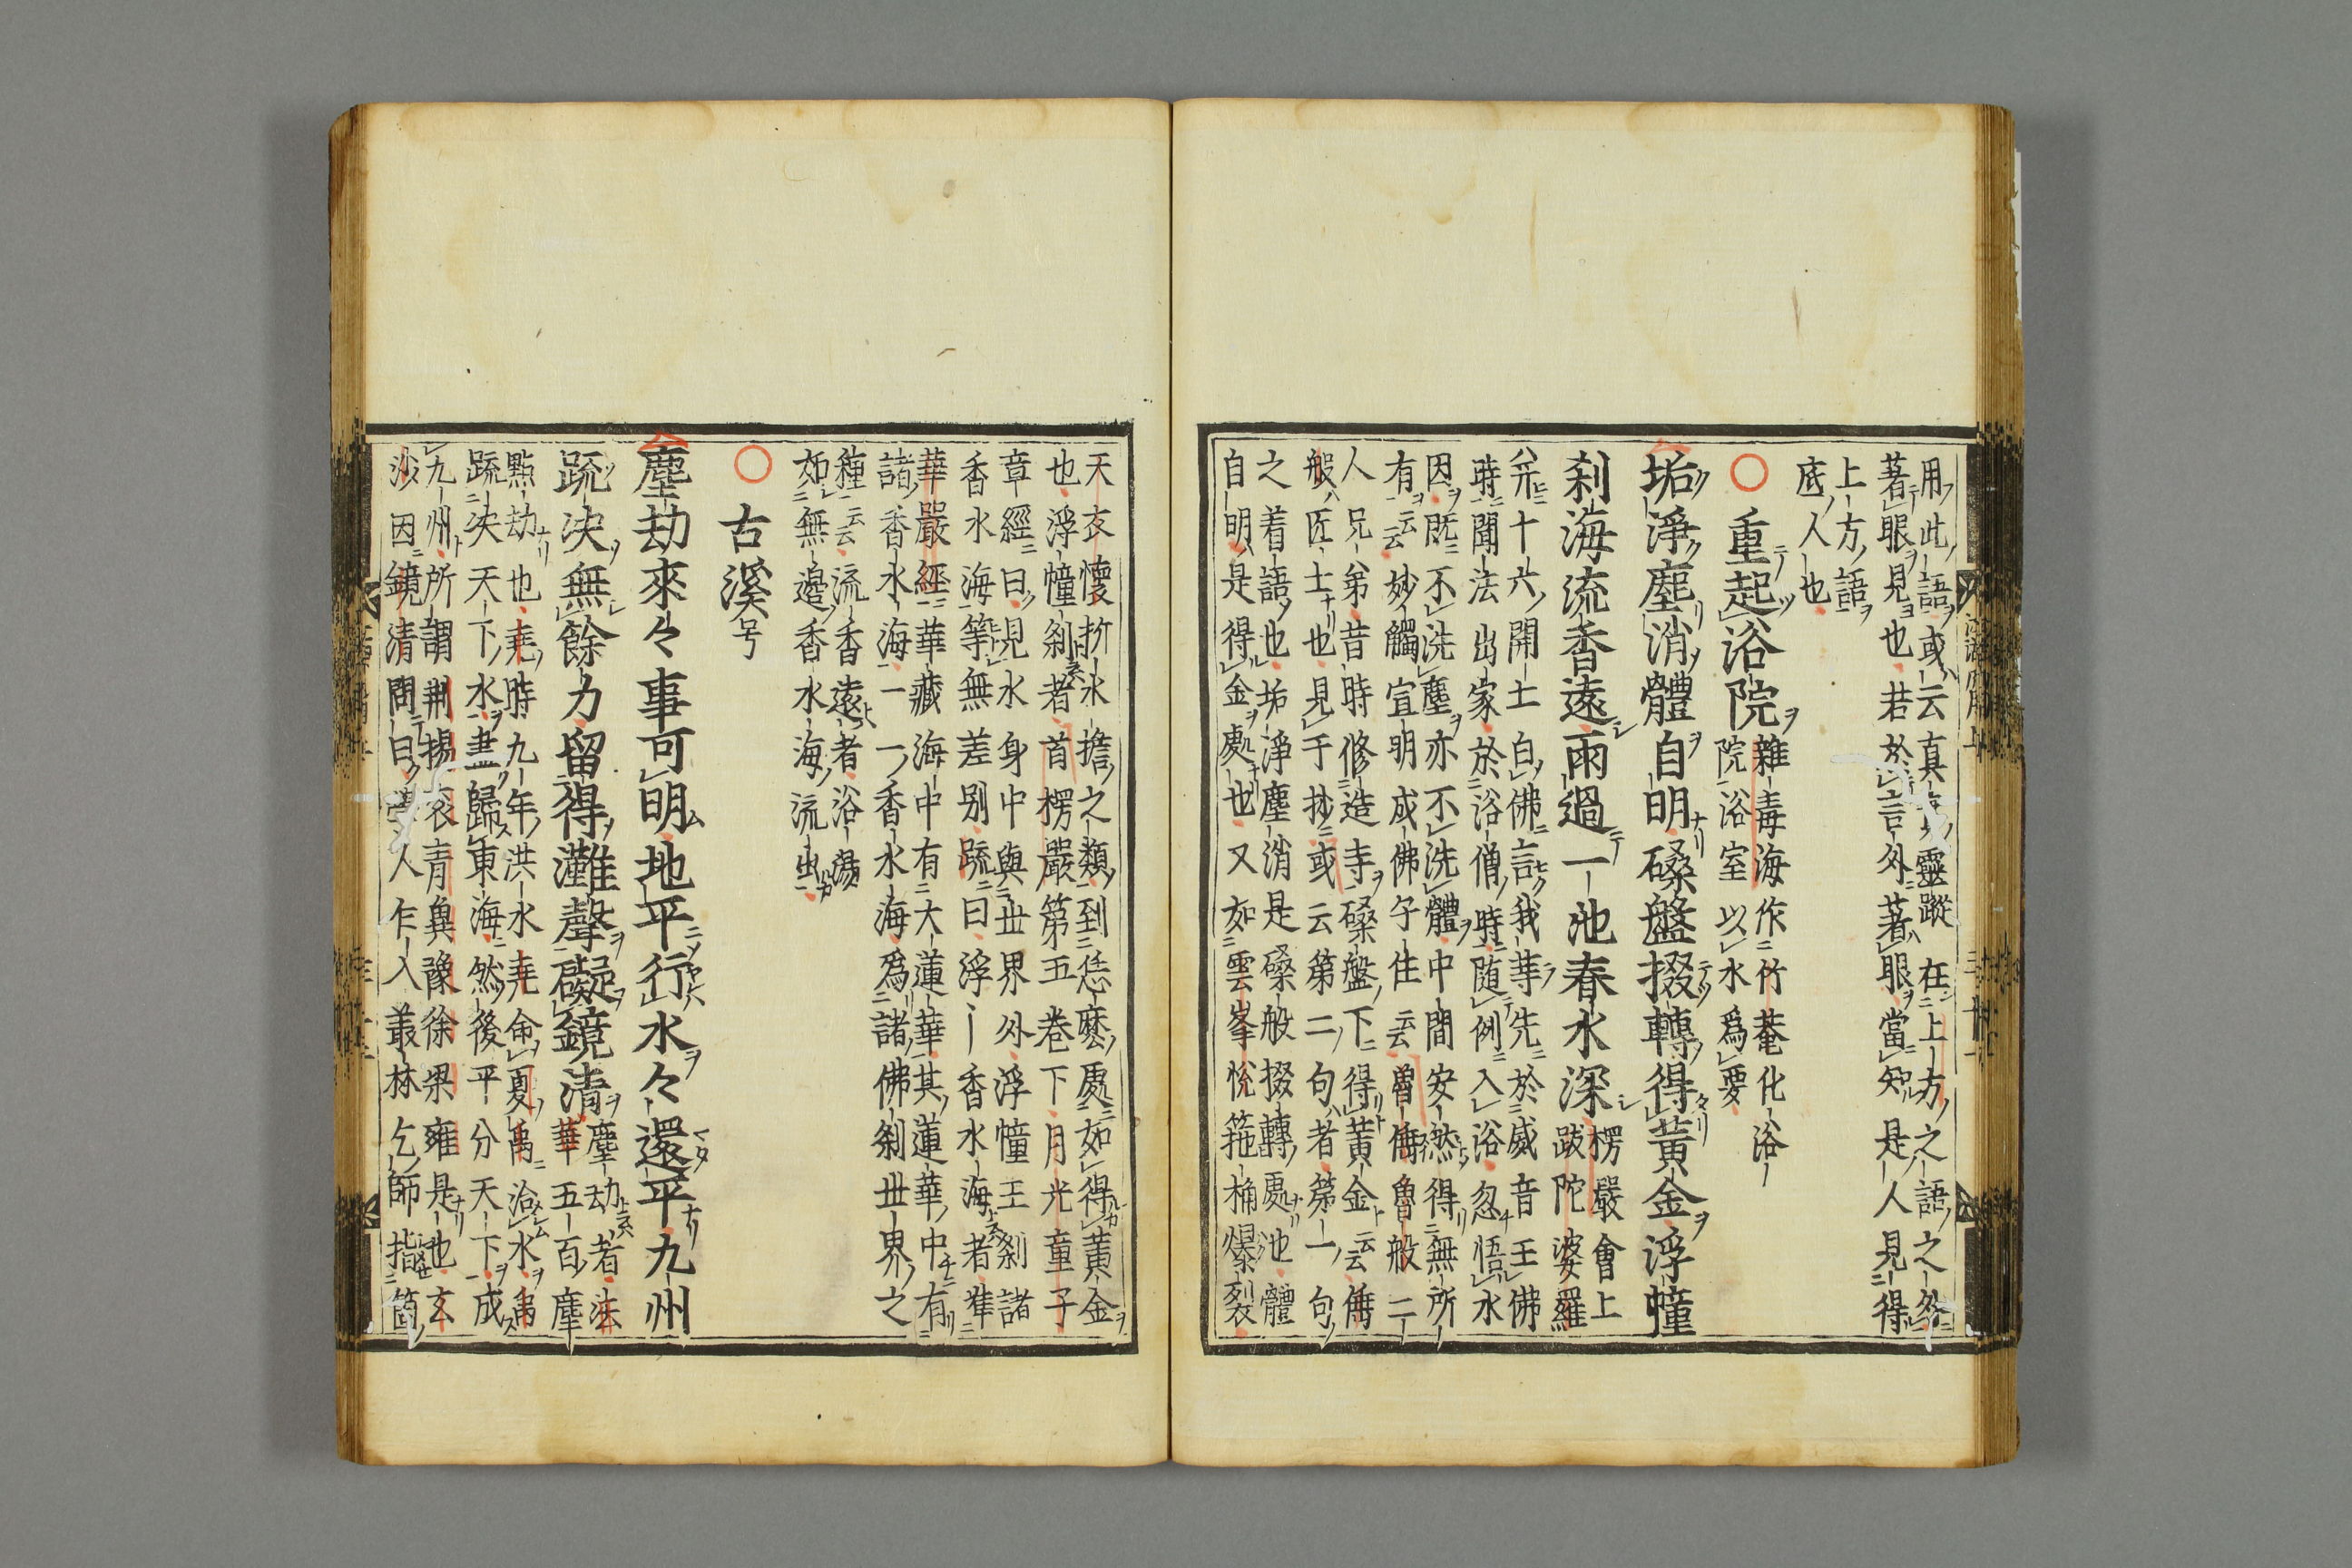 用此語或云真無靈蹤在上方之語之外
著眼見也若於言外著眼當知是人見得
上方語
底人也
○重起浴院
雜毒海作竹菴化浴
院浴室以水爲要
垢淨塵消體自明磉盤掇轉得黃金浮幢
刹海流香遠雨過一池春水深
楞嚴會上
跋陀婆羅
八元十六開士白佛言我等先於威音王佛
時聞法出家於浴僧時随例入浴忽悟水
因既不洗塵亦不洗體中間安然得無所
有云云妙觸宣明成佛子住云云曽儁魯般二
人兄弟昔時修造寺磉盤下得黃金云云儁
般匠士也見于抄或云第二句者第一句
之着語也垢淨塵消是磉般掇轉處也體
自明是得金處也又如雲峯悅箍桶爆裂
天衣懷折水擔之類到恁麼處如得黃金
也浮幢刹者首楞嚴第五卷下月光童子
章經曰見水身中與世界外浮幢王刹諸
香水海等無差別疏曰浮〻香水海者準
華嚴經華藏海中有大蓮華其蓮華中有
諸香水海一一香水海爲諸佛刹世界之
種云云流香遠者浴湯
如無邊香水海流出
○古溪号
塵劫來々事可明地平行水々還平九州
疏决無餘力留得灘聲礙鏡清
塵劫者法
華五百塵
點劫也堯時九年洪水堯命夏禹治水禹
疏决天下水盡歸東海然後平分天下成
九州所謂荆揚兗青冀豫徐梁雍是也玄
沙因鏡清問曰學人乍入叢林乞師指箇